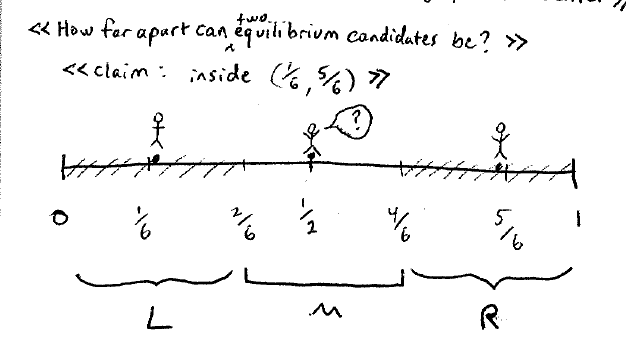 << How far apart can two equilibrium candidates be? >>
<< claim : inside (1/6, 5/6) >>
?
0 1/6 2/6 1/2 4/6 5/6 1
L M R